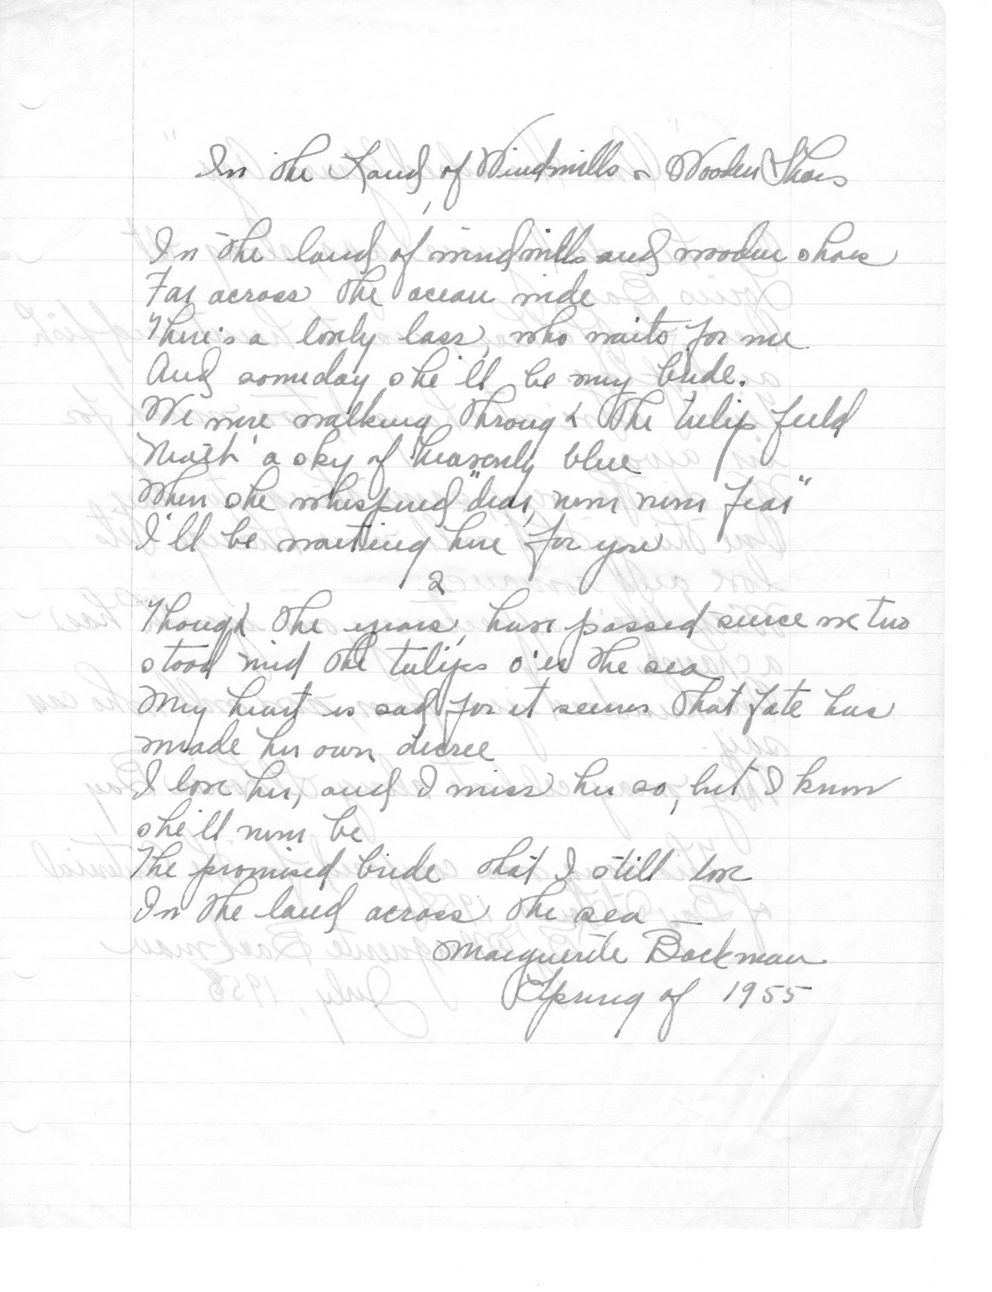 In the Land of Windmills & Wooden Shoes
In the land of windmills and wooden shoes
Far across the ocean wide
There's a lonly lass, who waits for me
And someday she'll be my bride.
We were walking through the tulip field
Neath a sky of heavenly blue
When she whispered "dear, never never fear"
I'll be waiting here for you
2
Though the years, have passed since we two
stood 'mid the tulips o'er the sea
My heart is sad, for it seems that fate has
made her own decree
I love her, and I miss her so, but I know
she'll never be
The promised bride that I still love
In the land across the sea —
Marguerite Backman
Spring of 1955